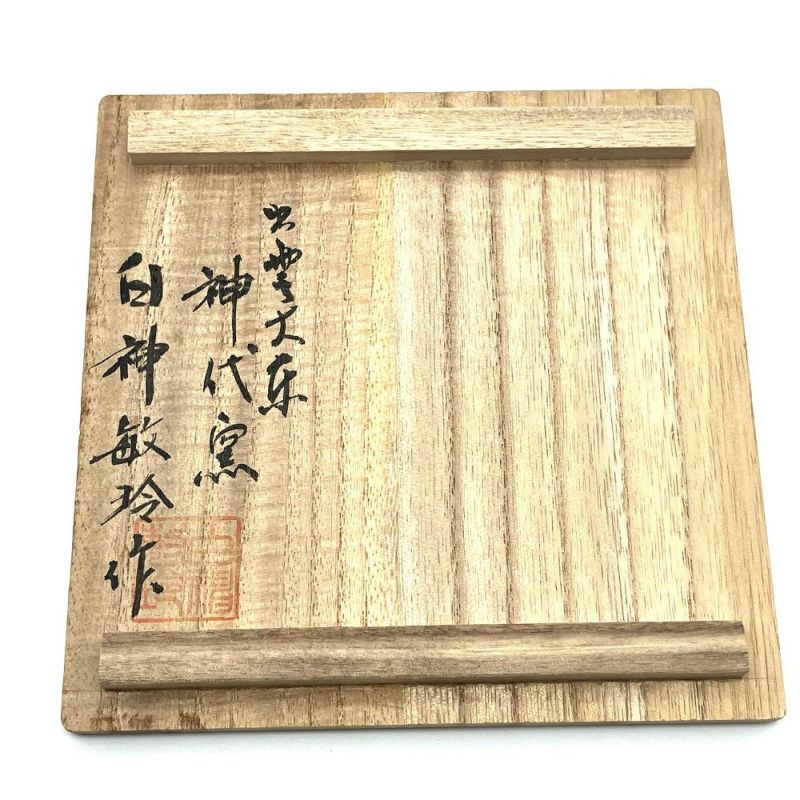 出雲大東
神代窯
白神敏玲作